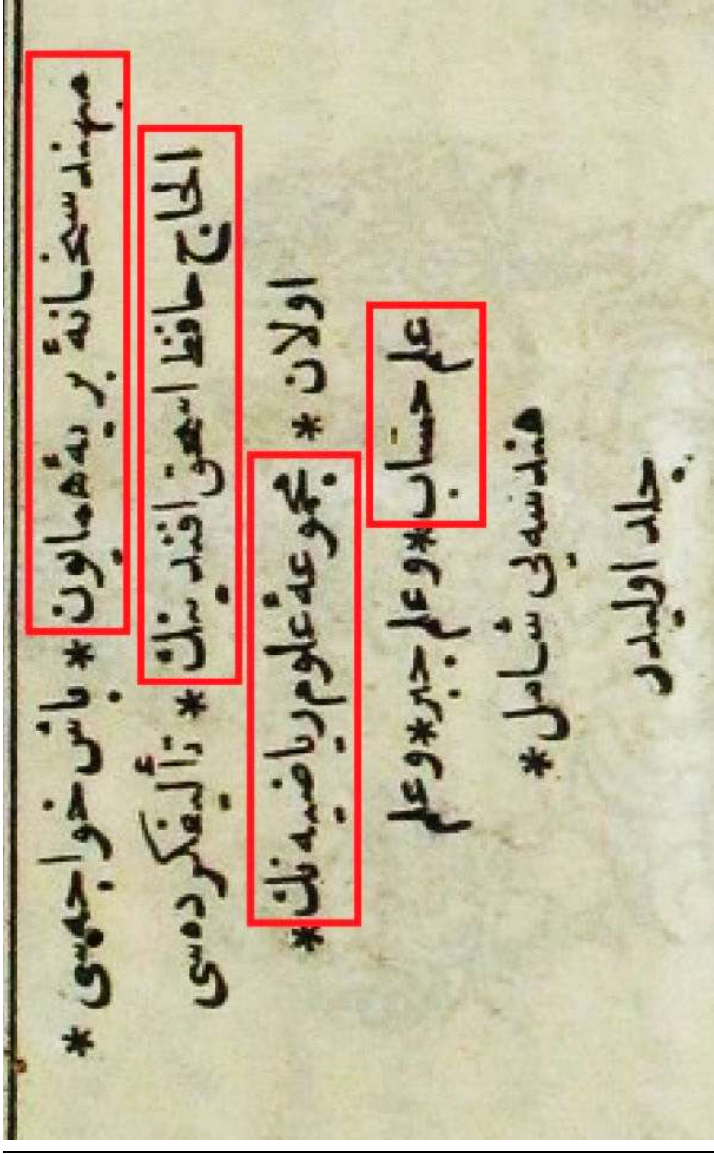 مهندسخانهٔ بريهٔ همايون * باش خواجه‌سى *
الحاج حافظ اسحق افندينك * تأليفكرده‌سى
اولان * مجموعهٔ علوم رياضيه‌نك *
علم حساب * وعلم جبر * وعلم
هندسه‌يى شامل *
جلد اوليدر